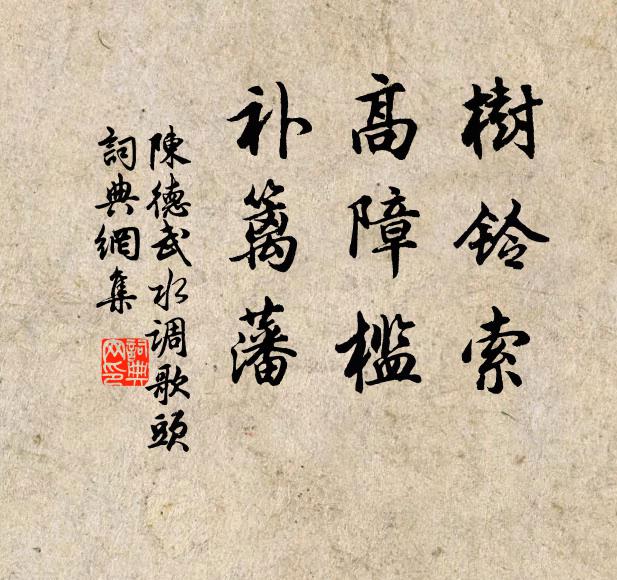 樹鈴索
高障槛
补篱藩
陳德武水调歌頭
詞典網集
詞典
网印